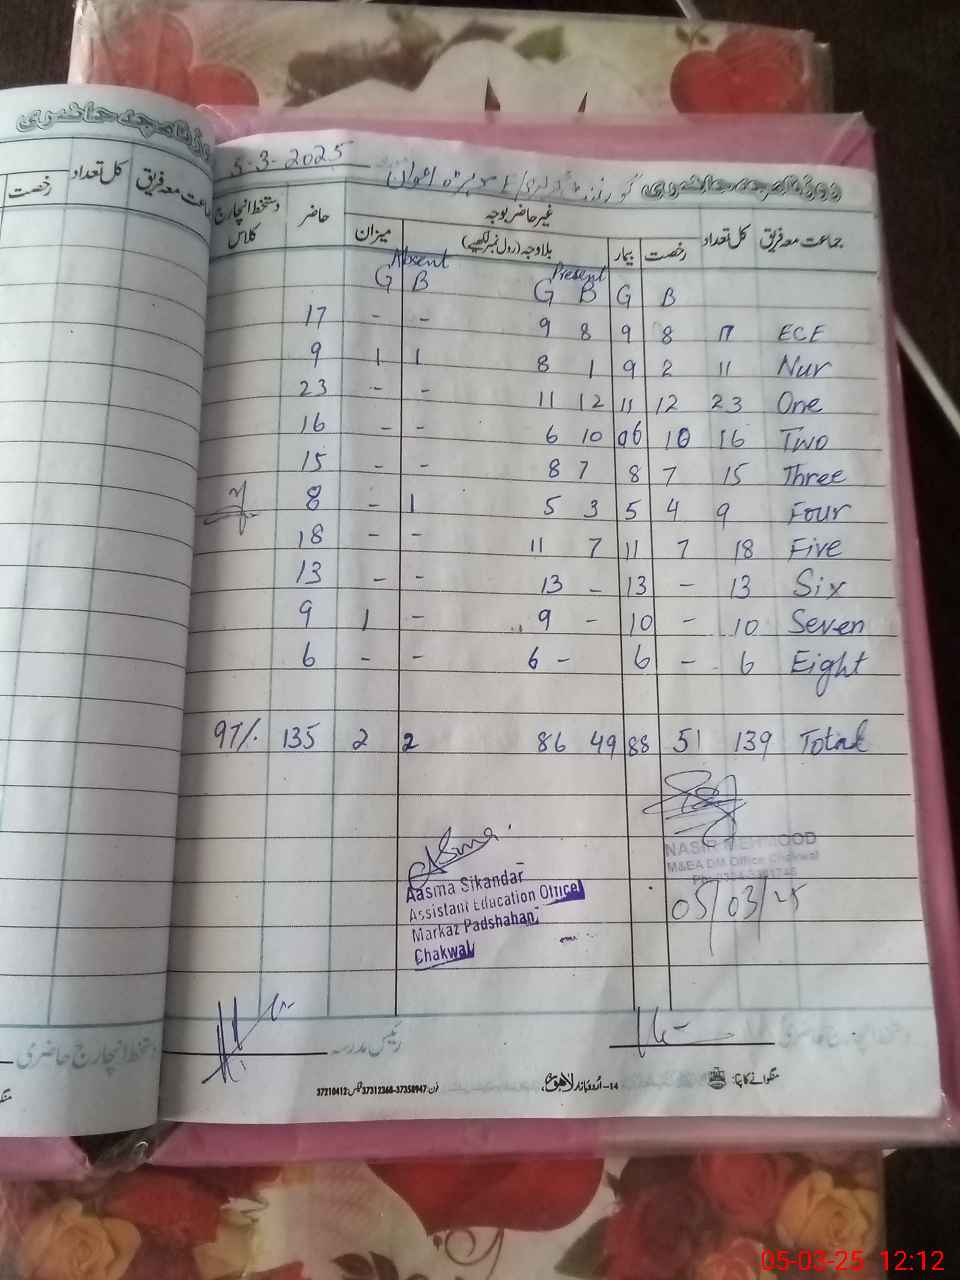 روزنامچہ حاضری
رخصت کل تعداد جماعت معہ فریق
5-3-2025
روزنامچہ حاضری
جماعت معہ فریق کل تعداد غیر حاضر بوجہ حاضر دستخط انچارج کلاس
رخصت بیمار بلاوجہ (رول نمبر لکھیے) میزان
Absent Present
G B G B G B
17 - - 9 8 9 8 17 ECE
9 1 1 8 1 9 2 11 Nur
23 - - 11 12 11 12 23 One
16 - - 6 10 06 10 16 Two
15 - - 8 7 8 7 15 Three
8 - 1 5 3 5 4 9 Four
18 - - 11 7 11 7 18 Five
13 - - 13 - 13 - 13 Six
9 1 - 9 - 10 - 10 Seven
6 - - 6 - 6 - 6 Eight
97% 135 2 2 86 49 88 51 139 Total
NASIR MEHMOOD
M&EA DM Office Chakwal
05/03/25
Asma
Aasma Sikandar
Assistant Education Officer
Markaz Padshahan
Chakwal
دستخط انچارج حاضری
رئیس مدرسہ
دستخط انچارج حاضری
منگوانے کا پتا:
14-اُردو بازار لاہور
فون 37350947-37312360 فیکس:37210412
05-03-25 12:12